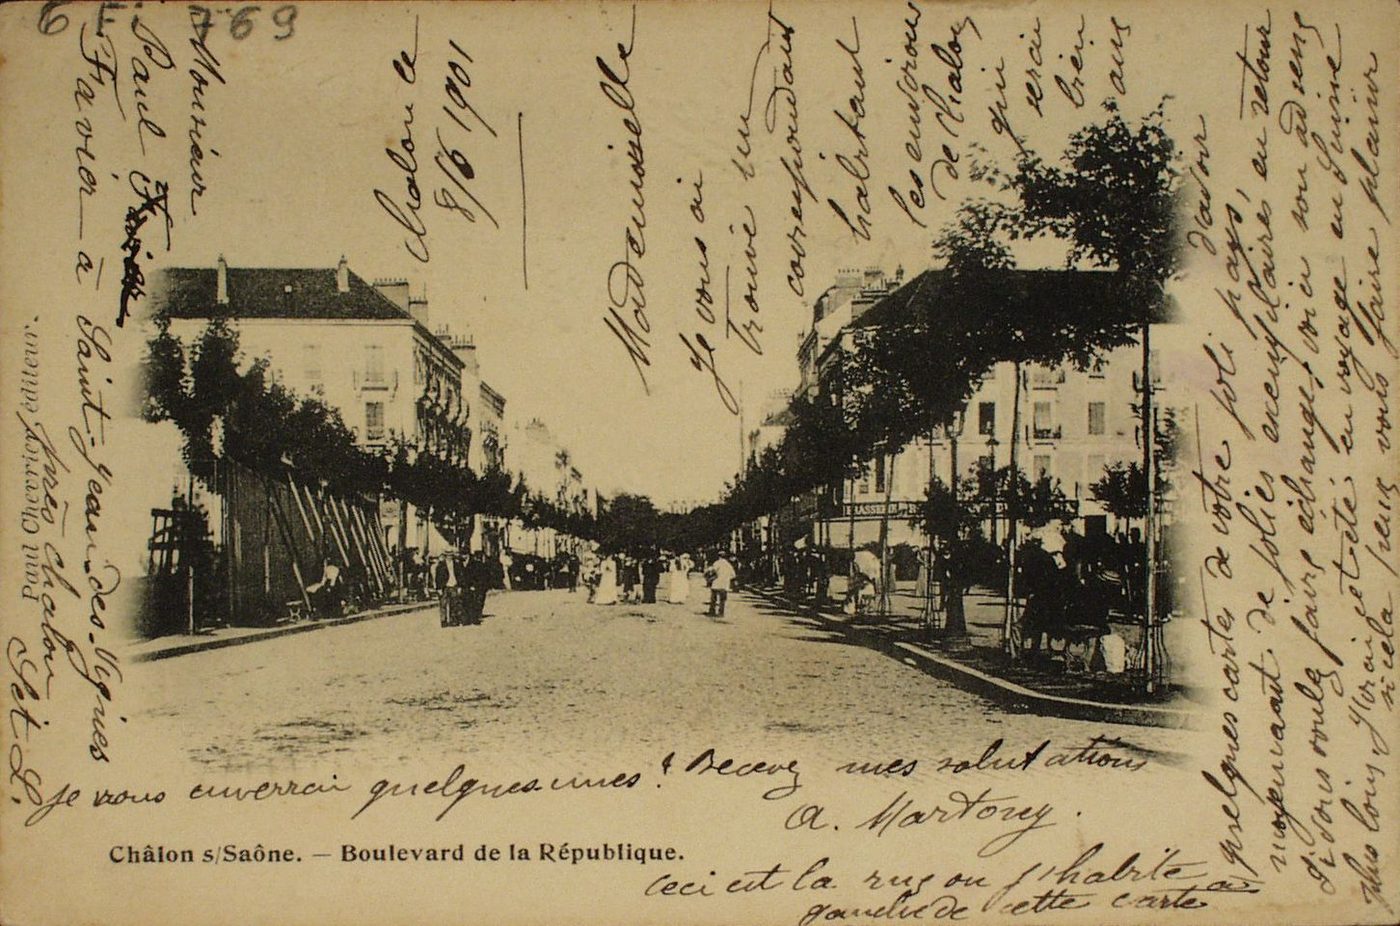 Châlon ce
8/6 1901
Mademoiselle
Je vous ai
trouvé un
correspondant
habitant
les environs
de Chalon
qui
serai
bien
ais
d'avoir
quelques cartes de votre joli pays,
moyennant de jolies exemplaires en retour
Si vous voulez faire échange, voici son adsens
plus loin, j'orai jeteté en voyage en Suisse
si cela peus vous faire plaisir
je vous enverrai quelques-unes! Recevez mes salutations
A. Martony.
Ceci est la rue ou j'habite a
gauche de cette carte
Monsieur
Paul Favier
Favier à Saint-Jean-des-Vignes
près Chalon
Set L.
769
6
Châlon s/Saône. — Boulevard de la République.
BRASSERIE